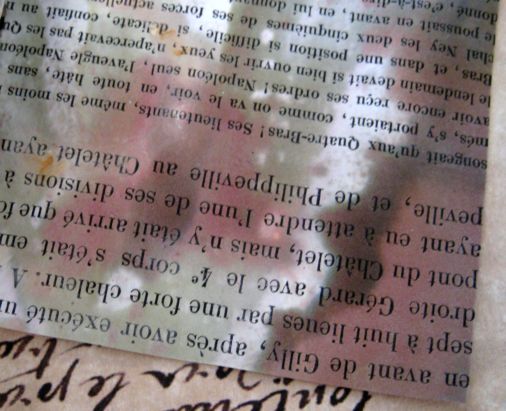 en avant de Gilly, après avoir exécuté
sept à huit lieues par une forte chaleur. A
droite Gérard avec le 4e corps s'était em
pont du Châtelet, mais n'y était arrivé que fo
ayant eu à attendre l'une de ses divisions à
peville, et de Philippeville au Châtelet ayan
songeait qu'aux Quatre-Bras! Ses lieutenants, même les moins
més, s'y portaient, comme on va le voir, en toute hâte, sans
avoir encore reçu ses ordres! Napoléon seul, l'aveugle Napoléon
le lendemain devait si bien ouvrir les yeux, n'apercevait pas les Qu
Bras, et dans une position si difficile, si délicate,
chal Ney les deux cinquièmes de ses forces actuelle
poussant en avant, en lui donn
donné, c'est-à-dire